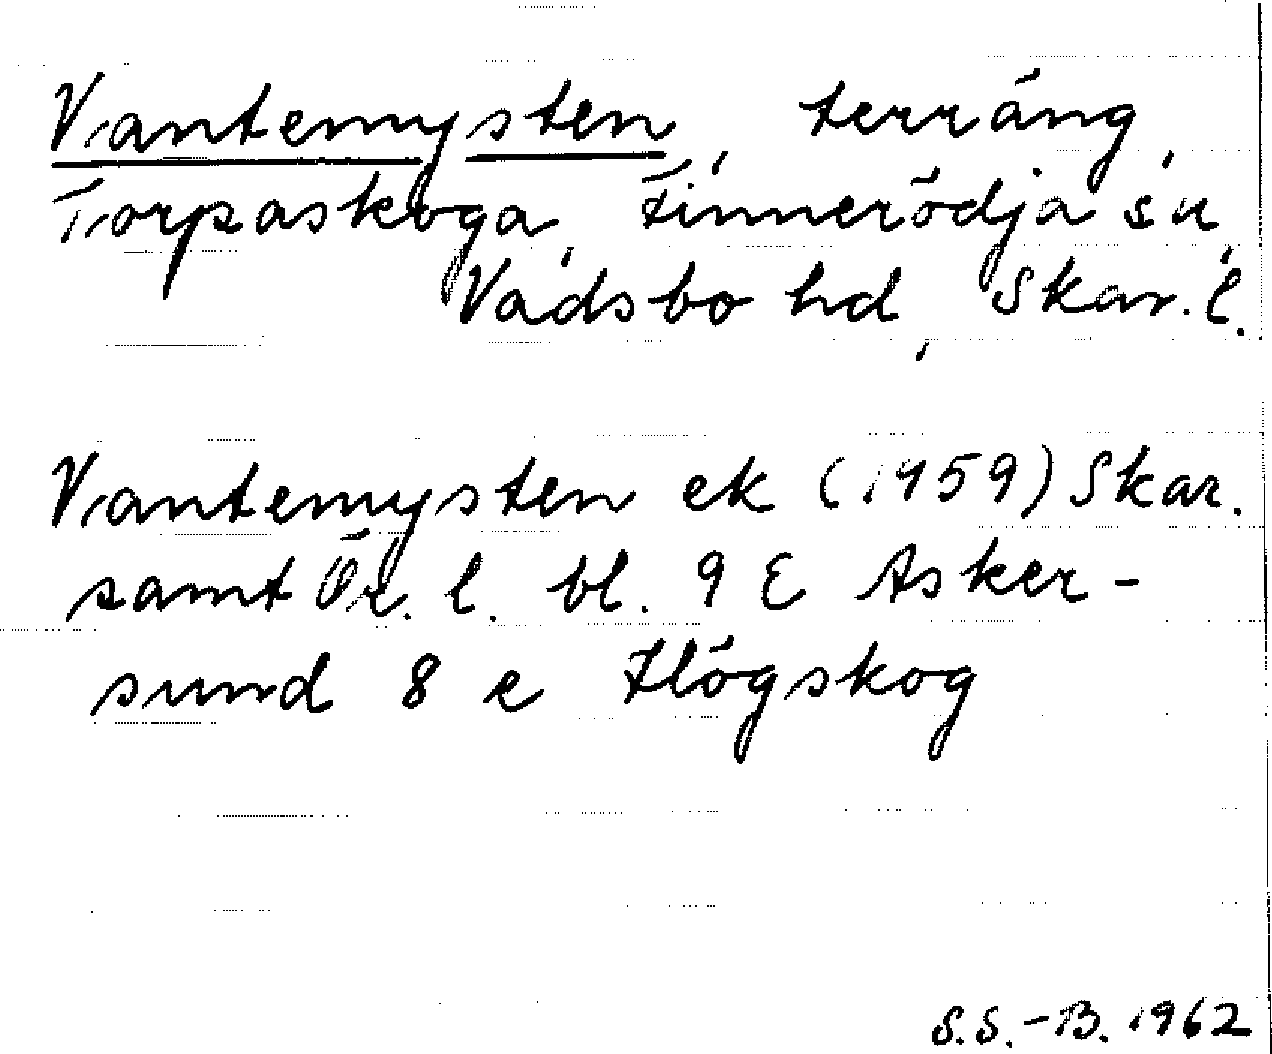 Vantemysten, terräng,
Torpaskoga, Finnerödja sn,
Vadsbo hd, Skar. l.
Vantemysten ek (1959) Skar.
samt Ör. l. bl. 9 E Asker-
sund 8 e Högskog
S.S.-B. 1962